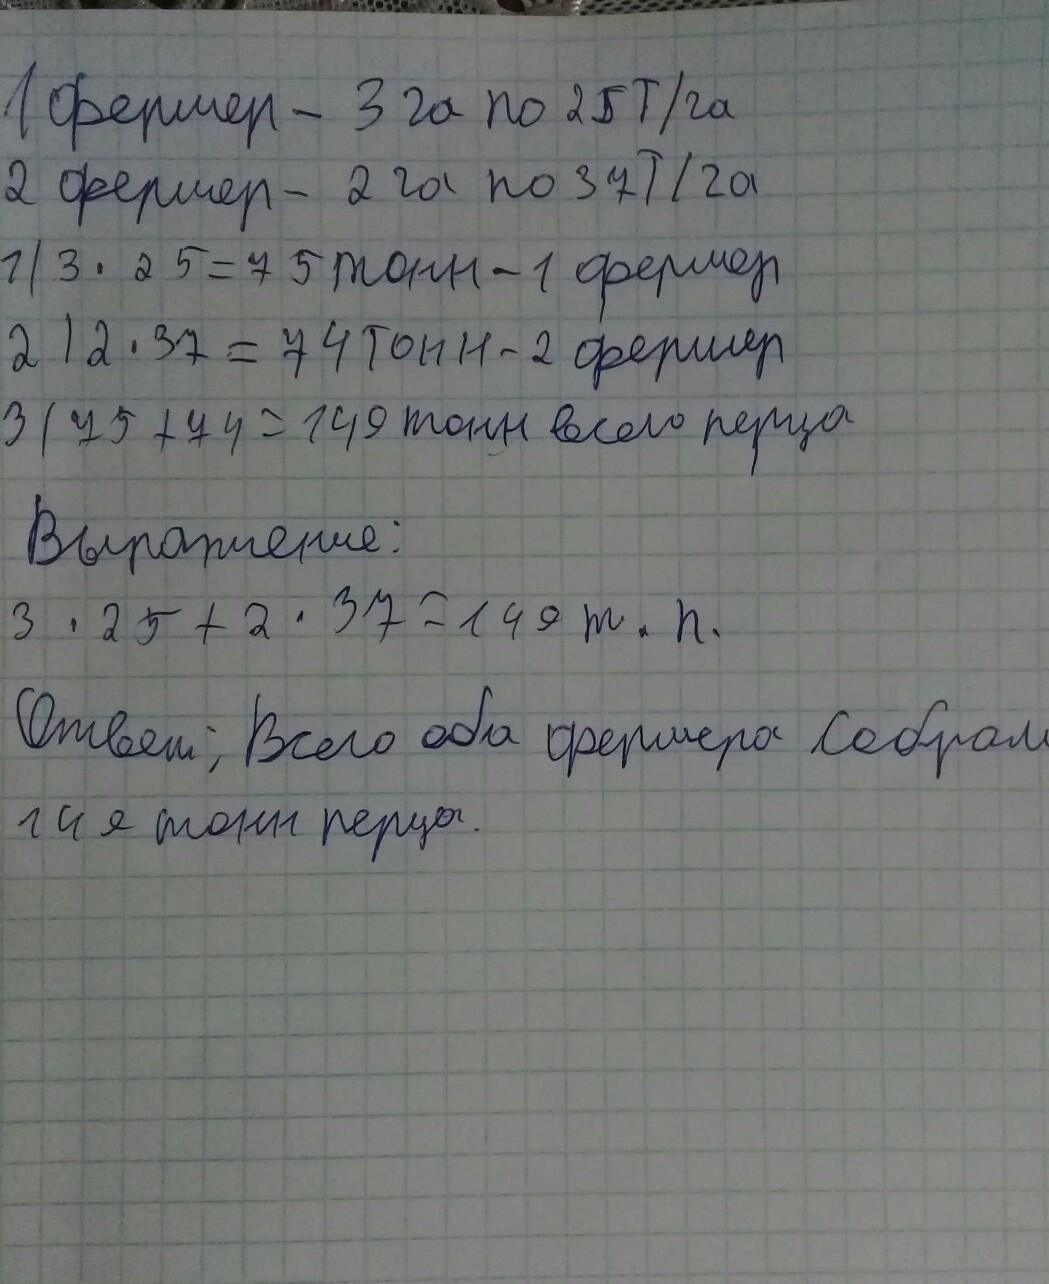 1 фермер - 3 га по 25Т/га
2 фермер - 2 га по 37Т/га
1/ 3 · 25 = 75 тонн - 1 фермер
2/ 2 · 37 = 74 тонн - 2 фермер
3/ 75 + 74 = 149 тонн всего перца
Выражение:
3 · 25 + 2 · 37 = 149 т. п.
Ответ; Всего оба фермера собрали
149 тонн перца.